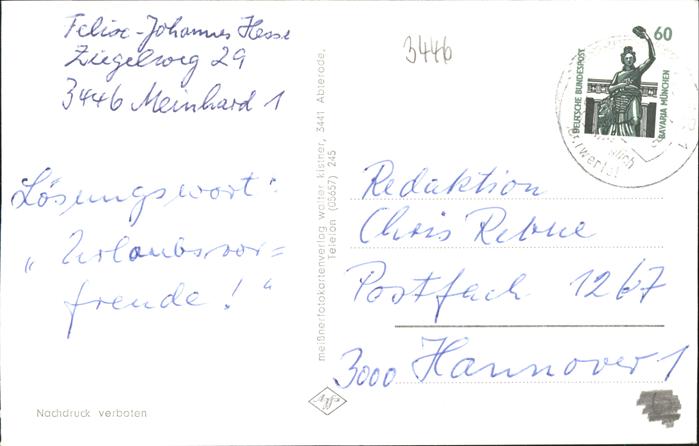 Felix-Johannes Hesse
Ziegelweg 29
3446 Meinhard 1
Lösungswort:
„Urlaubsvor=
freude!“
Nachdruck verboten
meißnerfotokartenverlag walter kistner, 3441 Abterode,
Telefon (05657) 245
3446
60
DEUTSCHE BUNDESPOST
BAVARIA MÜNCHEN
Redaktion
Chris
Postfach 1267
3000 Hannover 1